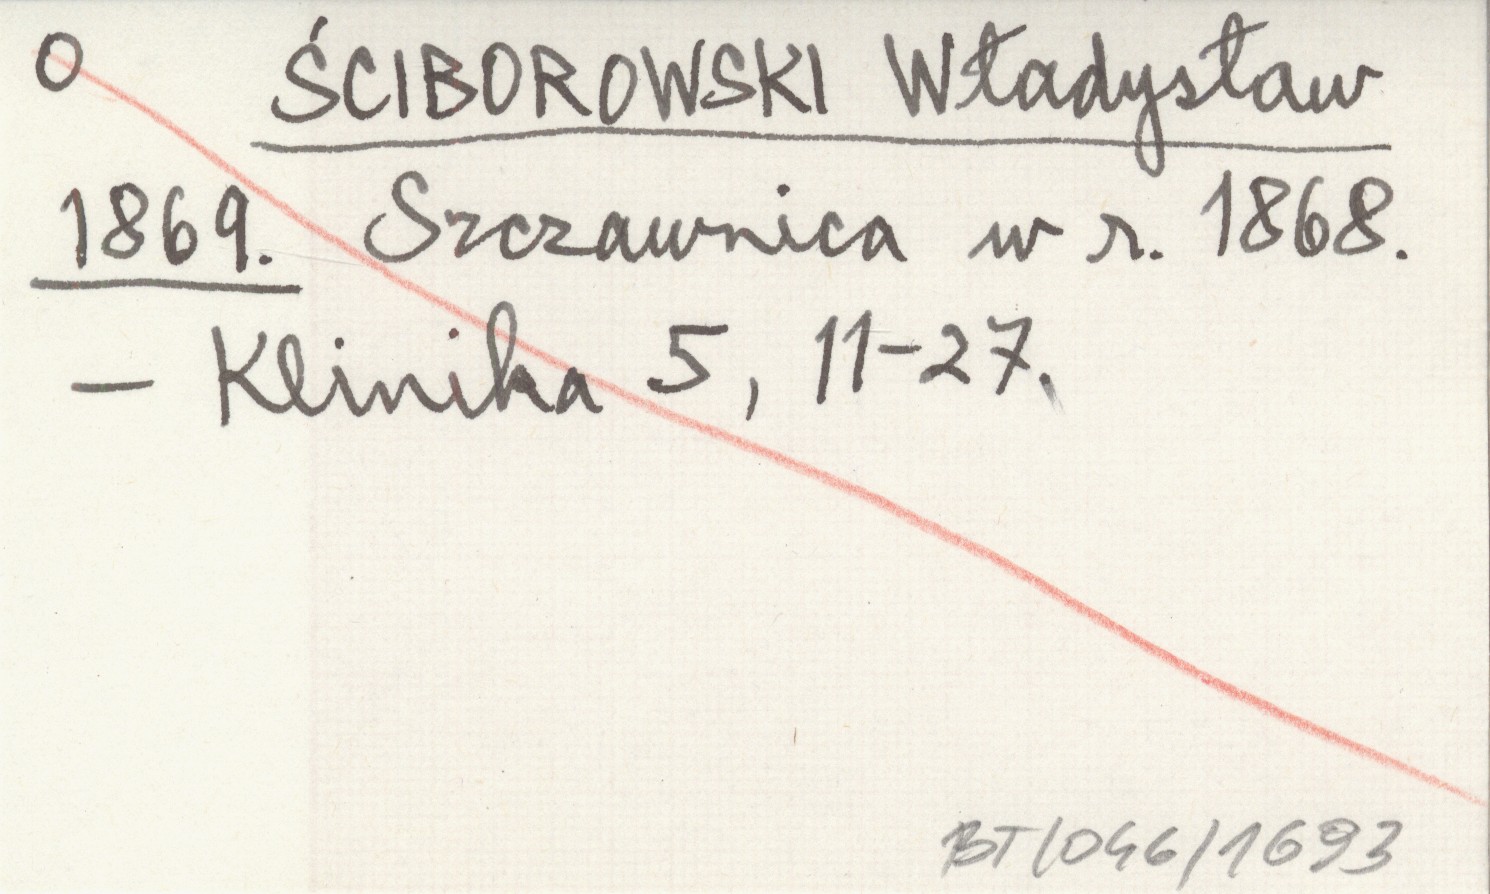 O ŚCIBOROWSKI Władysław
1869. Szczawnica w r. 1868.
– Klinika 5, 11-27.
BT/046/1693